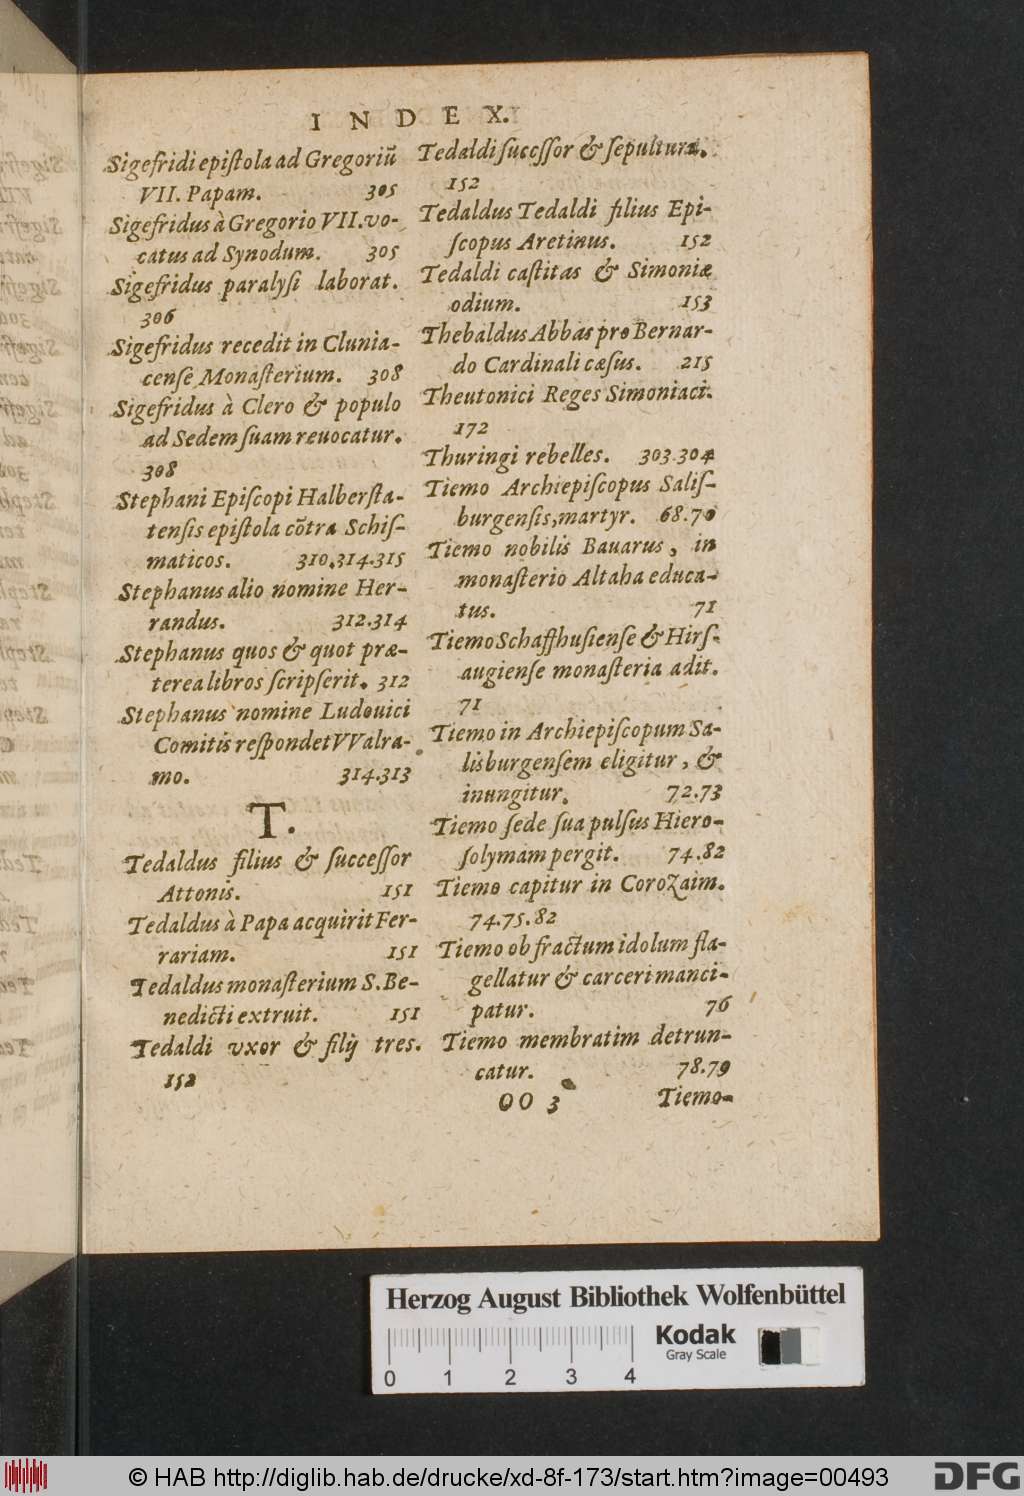 INDEX.
Sigefridi epiſtola ad Gregoriū
VII. Papam. 305
Sigefridus à Gregorio VII. vo-
catus ad Synodum. 305
Sigefridus paralyſi laborat.
306
Sigefridus recedit in Clunia-
cenſe Monaſterium. 308
Sigefridus à Clero & populo
ad Sedem ſuam reuocatur.
308
Stephani Epiſcopi Halberſta-
tenſis epiſtola cōtra Schiſ-
maticos. 310.314.315
Stephanus alio nomine Her-
randus. 312.314
Stephanus quos & quot præ-
terea libros ſcripſerit. 312
Stephanus nomine Ludouici
Comitis reſpondet VValra-
mo. 314.313
T.
Tedaldus filius & ſucceſſor
Attonis. 151
Tedaldus à Papa acquirit Fer-
rariam. 151
Tedaldus monaſterium S. Be-
nedicti extruit. 151
Tedaldi vxor & filij tres.
152
Tedaldi ſucſſor & ſepultura.
152
Tedaldus Tedaldi filius Epi-
ſcopus Aretinus. 152
Tedaldi caſtitas & Simoniæ
odium. 153
Thebaldus Abbas pro Bernar-
do Cardinali cæſus. 215
Theutonici Reges Simoniaci.
172
Thuringi rebelles. 303.304
Tiemo Archiepiſcopus Saliſ-
burgenſis, martyr. 68.70
Tiemo nobilis Bauarus, in
monaſterio Altaha educa-
tus. 71
Tiemo Schaffhuſienſe & Hirſ-
augienſe monaſteria adit.
71
Tiemo in Archiepiſcopum Sa-
lisburgenſem eligitur, &
inungitur. 72.73
Tiemo ſede ſua pulſus Hiero-
ſolymam pergit. 74.82
Tiemo capitur in Corozaim.
74.75.82
Tiemo ob fractum idolum fla-
gellatur & carceri manci-
patur. 76
Tiemo membratim detrun-
catur. 78.79
OO 3 Tiemo-
Herzog August Bibliothek Wolfenbüttel
Kodak
Gray Scale
0 1 2 3 4
© HAB http://diglib.hab.de/drucke/xd-8f-173/start.htm?image=00493
DFG